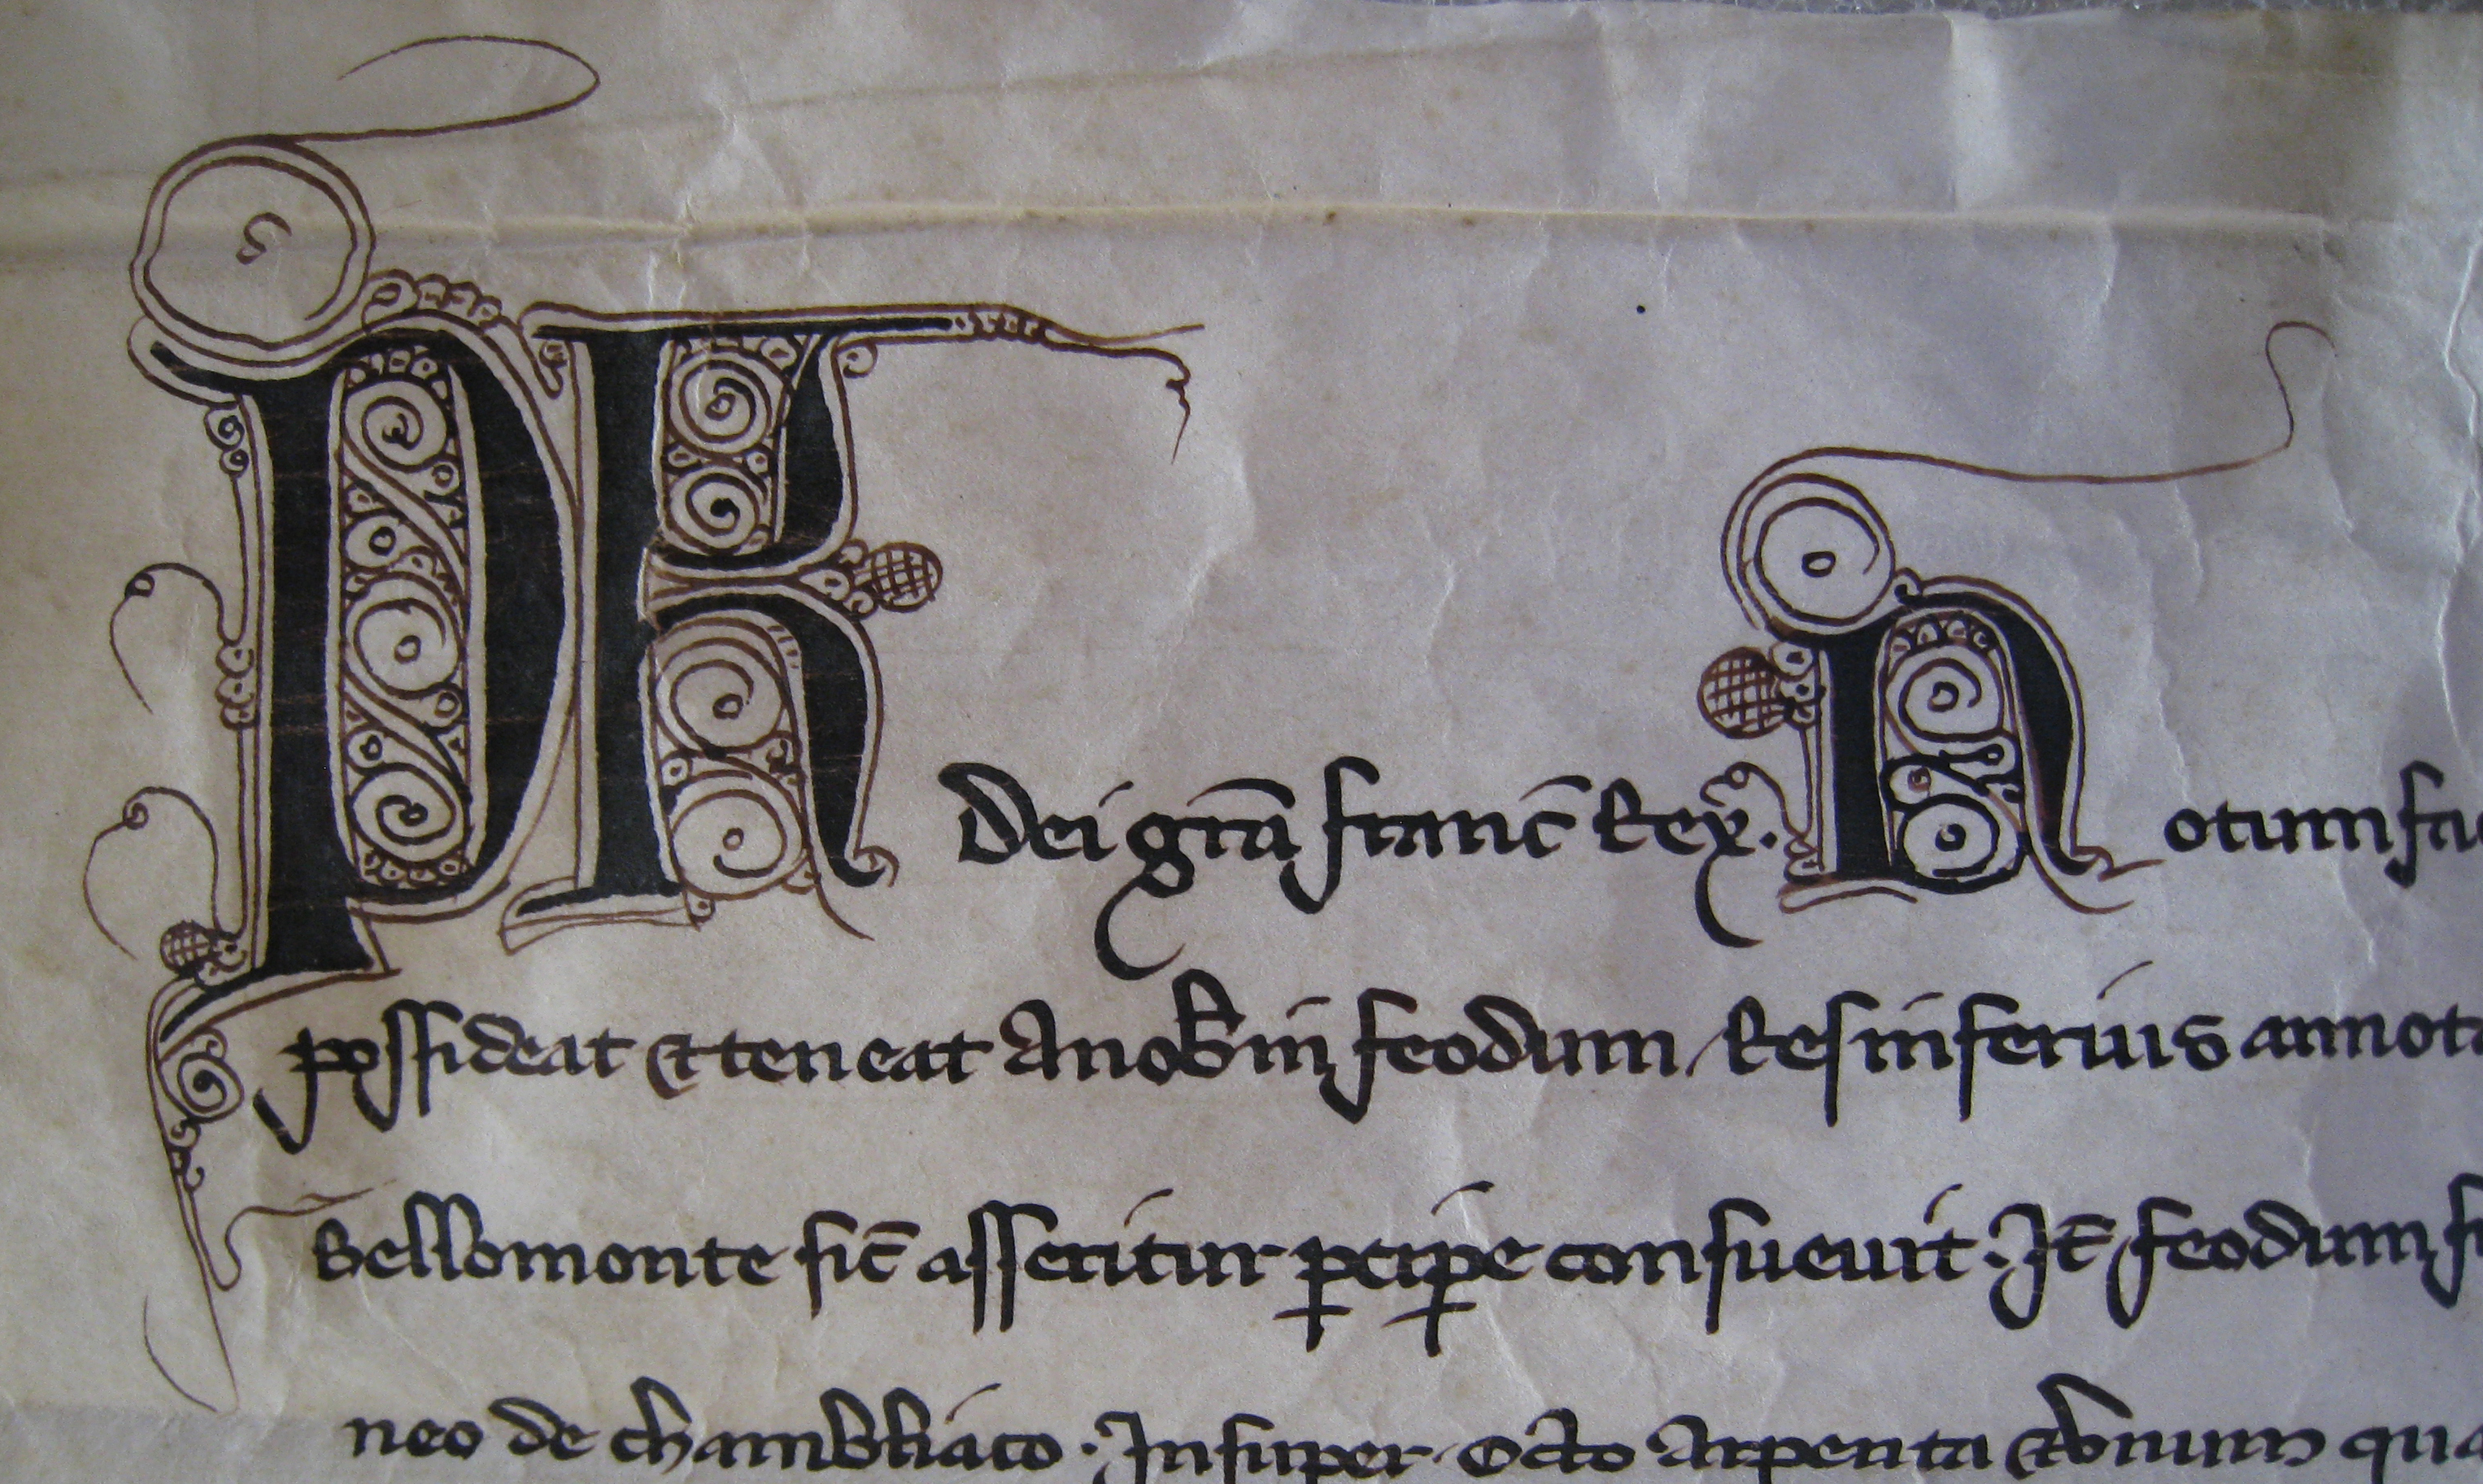 PR Dei grã franc̃ Rex. Notum fa
possideat et teneat A nob̄ in feodum Res inferius annota
Bellomonte sic̃ asseritur p̱cip̱e consueuit. It̃ feodum
neo de chambliaco. Insuper octo Arpenta qua